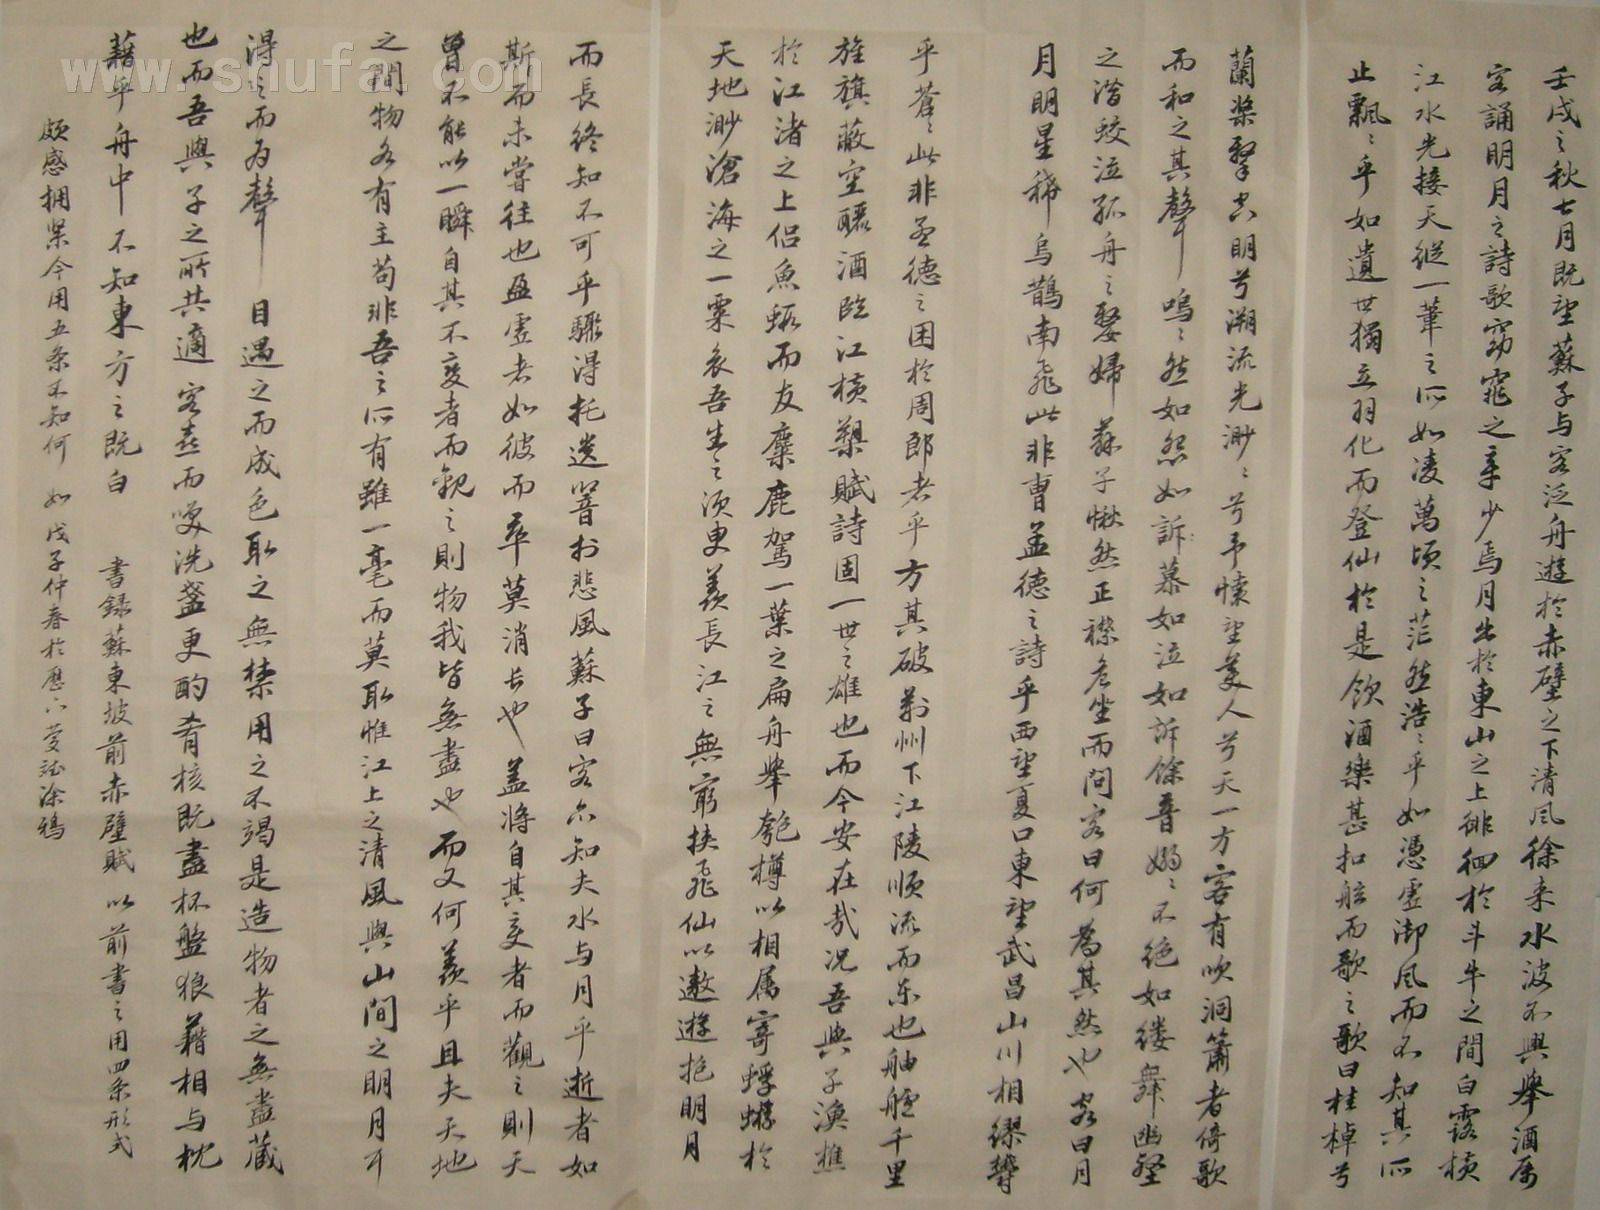 壬戌之秋七月既望蘇子与客泛舟遊於赤壁之下清风徐来水波不興舉酒属
客誦明月之詩歌窈窕之章少焉月出於東山之上徘徊於斗牛之間白露横
江水光接天縱一葦之所如凌萬頃之茫然浩々乎如憑虚御风而不知其所
止飄々乎如遺世獨立羽化而登仙於是飲酒樂甚扣舷而歌之歌曰桂棹兮
蘭槳擊空明兮溯流光渺々兮予懷望美人兮天一方客有吹洞簫者倚歌
而和之其聲嗚々然如怨如訴慕如泣如訴餘音嫋々不绝如缕舞幽壑
之潜蛟泣孤舟之嫠婦蘇子愀然正襟危坐而问客曰何為其然也客曰月
月明星稀烏鵲南飛此非曹孟德之詩乎西望夏口東望武昌山川相繆鬱
乎蒼々此非孟德之困於周郎者乎方其破荆州下江陵顺流而东也舳舻千里
旌旗蔽空釃酒臨江横槊賦詩固一世之雄也而今安在哉况吾與子漁樵
於江渚之上侣魚蝦而友麋鹿駕一葉之扁舟舉匏樽以相属寄蜉蝣於
天地渺滄海之一粟哀吾生之須臾羨長江之無窮挟飛仙以遨遊抱明月
而長終知不可乎驟得托遗響於悲風蘇子曰客亦知夫水与月乎逝者如
斯而未嘗往也盈虚者如彼而卒莫消长也盖將自其变者而觀之則天
曾不能以一瞬自其不变者而觀之則物我皆無盡也而又何羨乎且夫天地
之間物各有主苟非吾之所有雖一毫而莫取惟江上之清風與山間之明月耳
得之而为聲目遇之而成色取之無禁用之不竭是造物者之無盡藏
也而吾與子之所共適客喜而笑洗盏更酌肴核既盡杯盤狼藉相与枕
藉乎舟中不知東方之既白 書録蘇東坡前赤壁賦 以前書之用四条形式
頗感拥 今用五条不知何如 戊子仲春於 涂鴉
www.shufa.com